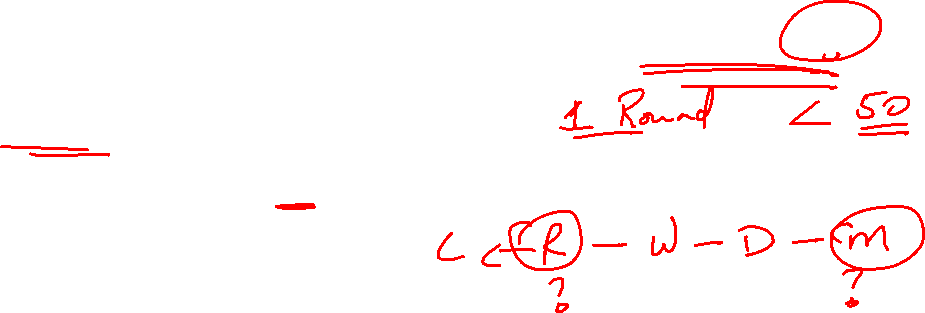 1 Round < 50
R - W - D - m
? ?